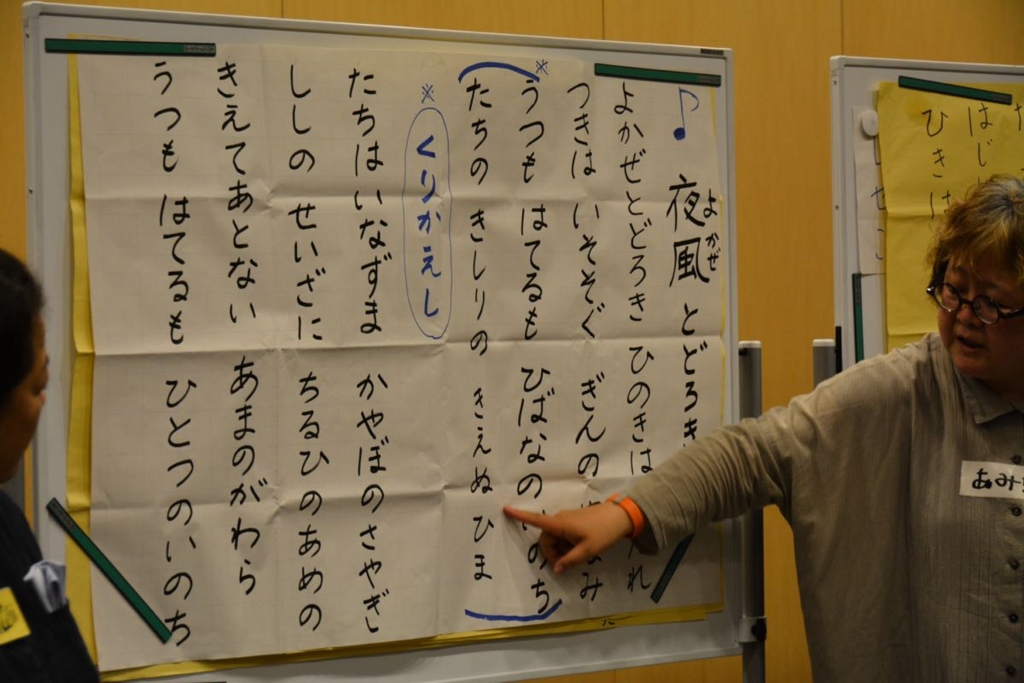 ♪ 夜風とどろき
よかぜ
よかぜとどろき ひのきは
つきは いそそぐ ぎんの
※
うつも はてるも ひばなの いのち
たちの きしりの きえぬ ひま
※ くりかえし
たちは いなずま かやぼの さやぎ
ししの せいざに ちるひの あめの
きえてあとない あまのがわら
うつも はてるも ひとつの いのち
はじ
ひきは
あみ